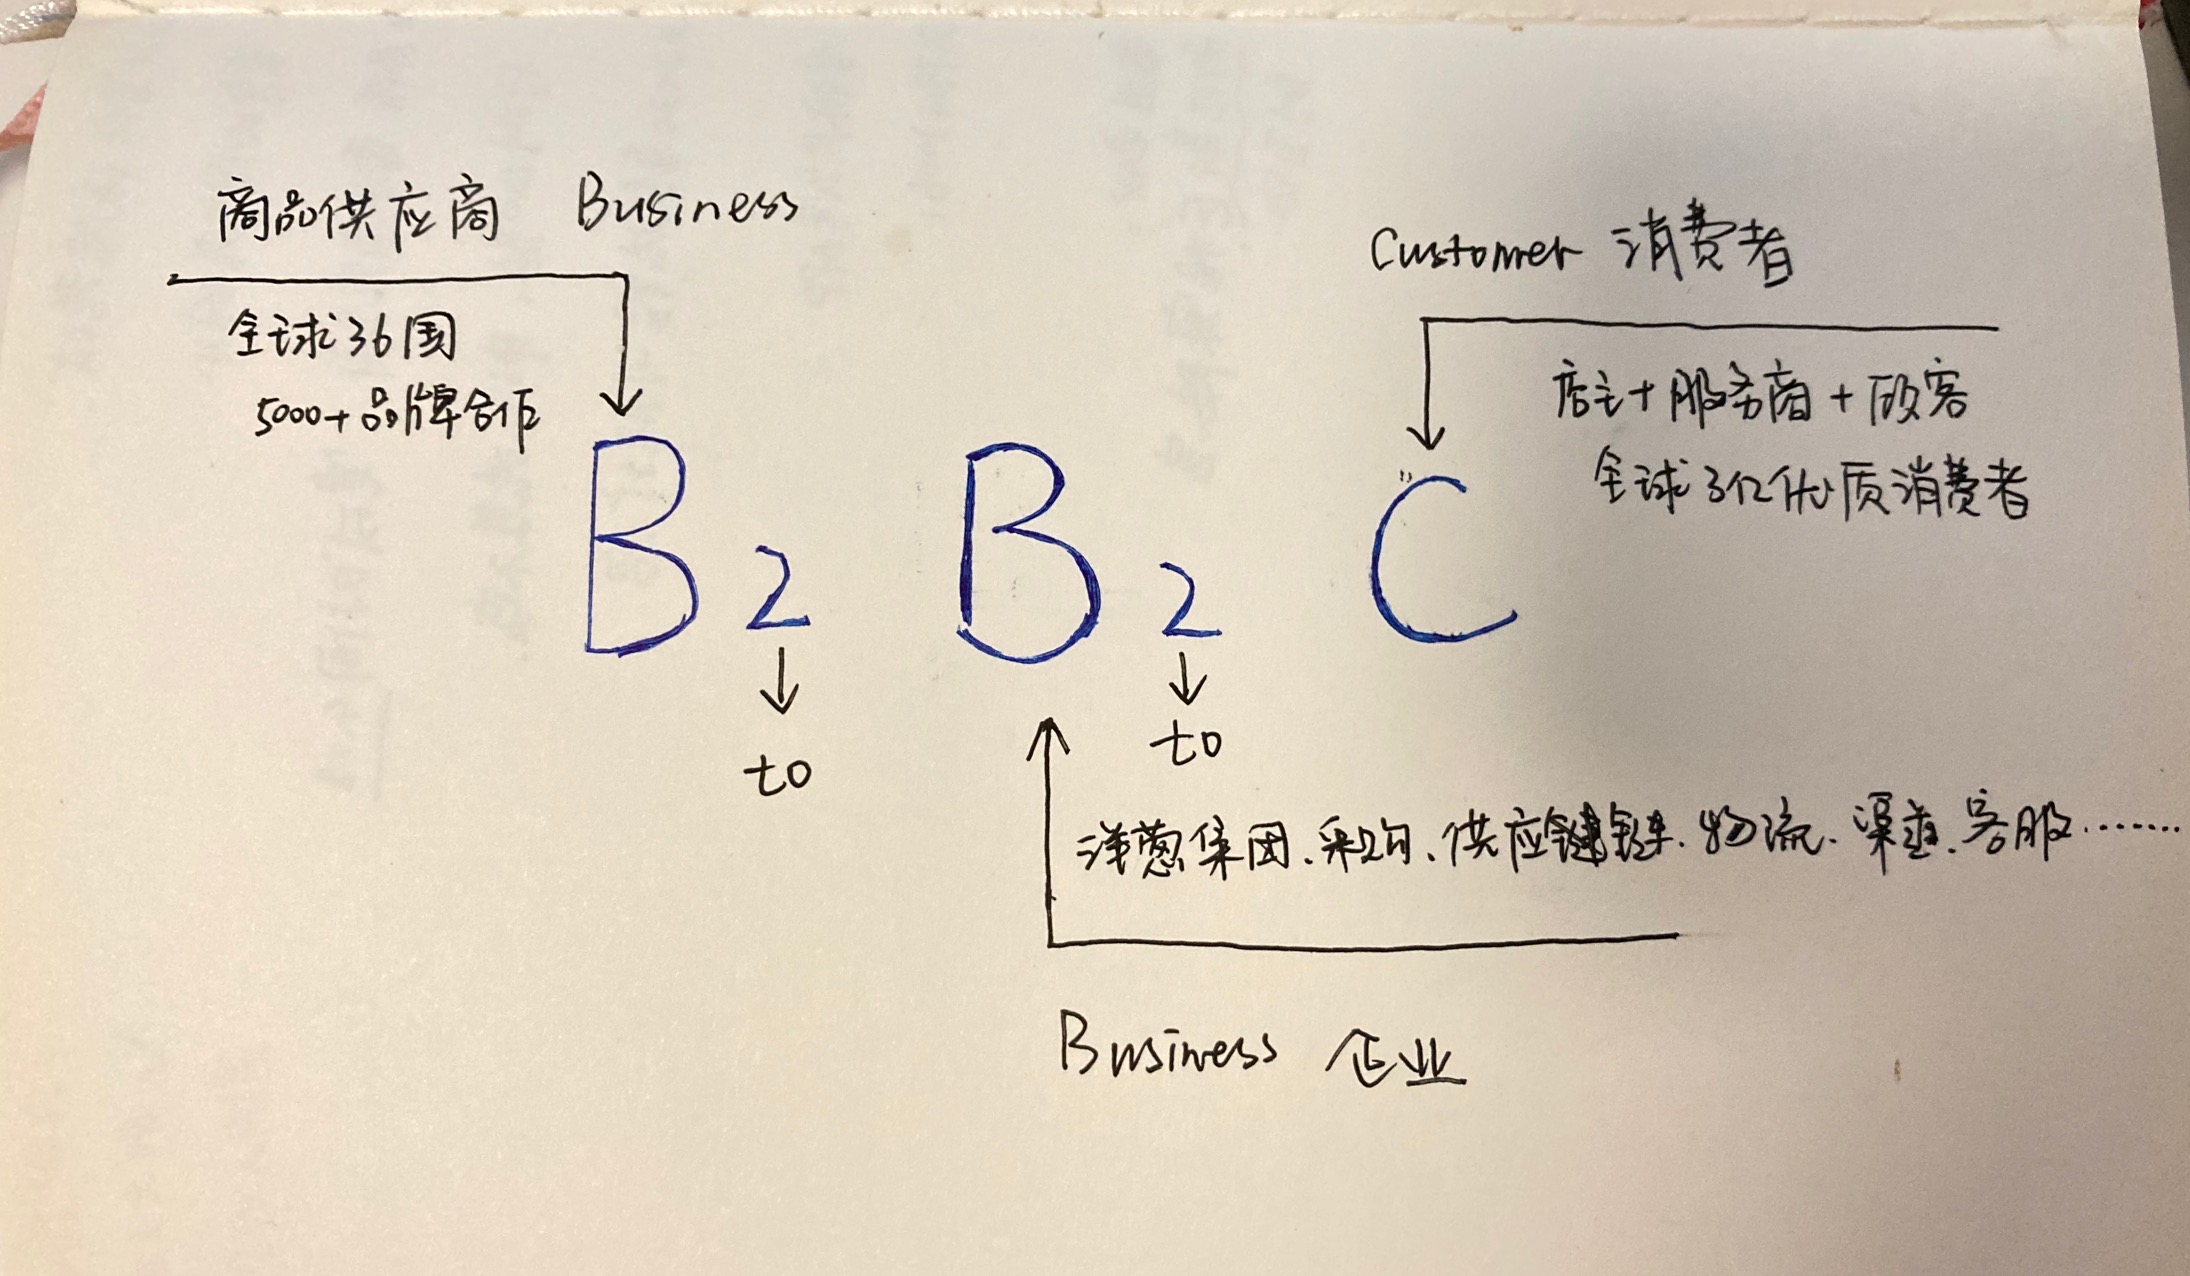 商品供应商 Business
全球36国
5000+品牌合作
Customer 消费者
店主+服务商+顾客
全球3亿优质消费者
B2B2C
to
to
洋葱集团、采购、供应链、物流、渠道、客服……
Business 企业